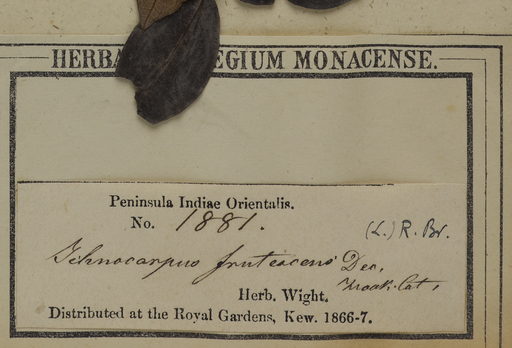 HERBA EGIUM MONACENSE.
Peninsula Indiae Orientalis.
No. 1881.
(L.) R. Br.
Ichnocarpus frutescens Dec,
Herb. Wight.
Distributed at the Royal Gardens, Kew. 1866-7.